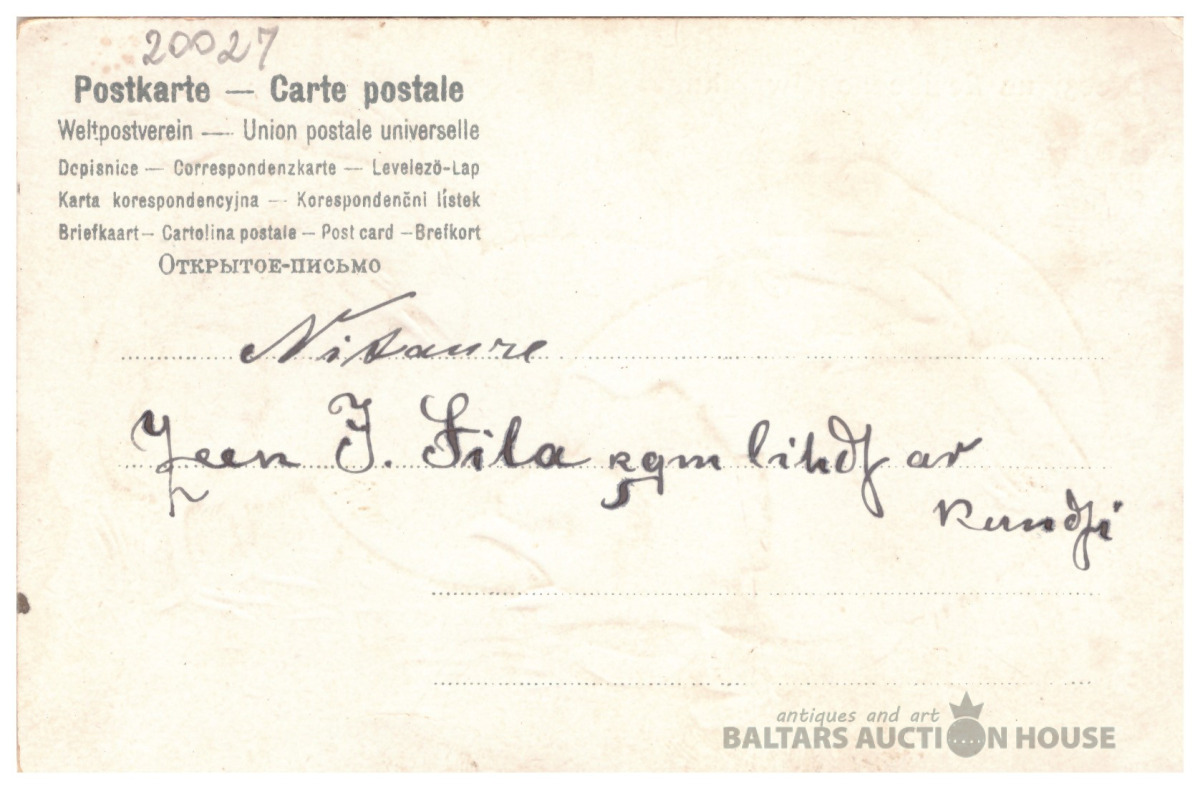 20027
Postkarte — Carte postale
Weltpostverein — Union postale universelle
Dopisnice — Correspondenzkarte — Levelező-Lap
Karta korespondencyjna — Korespondenčni lístek
Briefkaart — Cartolina postale — Post card — Brefkort
Открытое-письмо
Nitaure
J. Sila kgm lihdſ ar
kundſi
antiques and art
BALTARS AUCTION HOUSE